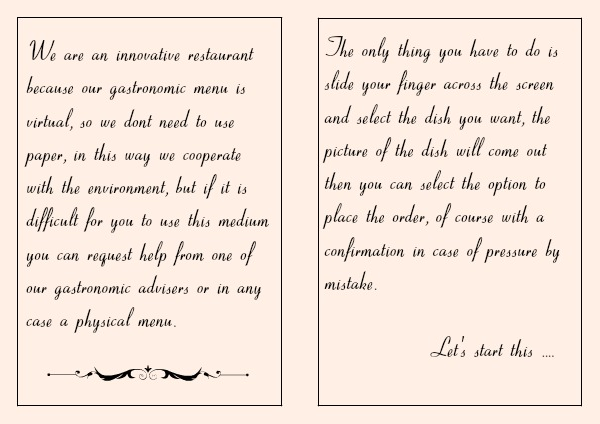 We are an innovative restaurant
because our gastronomic menu is
virtual, so we dont need to use
paper, in this way we cooperate
with the environment, but if it is
difficult for you to use this medium
you can request help from one of
our gastronomic advisers or in any
case a physical menu.
The only thing you have to do is
slide your finger across the screen
and select the dish you want, the
picture of the dish will come out
then you can select the option to
place the order, of course with a
confirmation in case of pressure by
mistake.
Let's start this ....